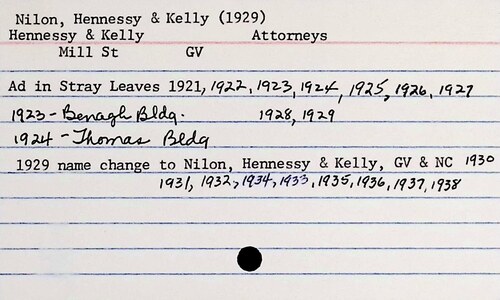 Nilon, Hennessy & Kelly (1929)
Hennessy & Kelly Attorneys
Mill St GV
Ad in Stray Leaves 1921, 1922, 1923, 1924, 1925, 1926, 1927
1923 - Benagh Bldg. 1928, 1929
1924 - Thomas Bldg
1929 name change to Nilon, Hennessy & Kelly, GV & NC 1930
1931, 1932, 1934, 1933, 1935, 1936, 1937, 1938